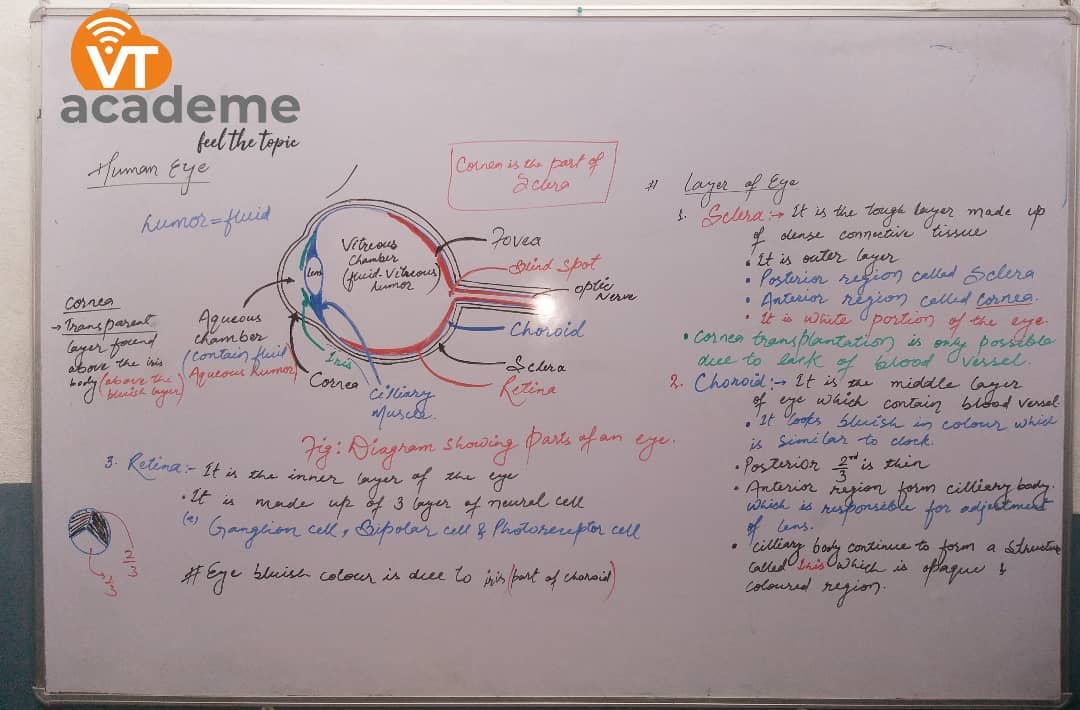 VT
academe
feel the topic
Human Eye
humor = fluid
Cornea is the part of
Sclera
Vitreous
Chamber
(fluid-Vitreous
humor)
lens
Fovea
Blind spot
optic
Nerve
Choroid
Sclera
Retina
Cornea
→ Transparent
layer found
above the iris
body (above the
bluish layer)
Aqueous
chamber
(contain fluid
Aqueous Humor)
Iris
Cornea
Cilliary
Muscle.
Fig: Diagram showing parts of an eye.
3. Retina:- It is the inner layer of the eye
• It is made up of 3 layer of neural cell
(e) Ganglion cell, Bipolar cell & Photoreceptor cell
# Eye bluish colour is due to iris (part of choroid)
2/3
1/3
# Layer of Eye
1. Sclera:→ It is the tough layer made up
of dense connective tissue
• It is outer layer
• Posterior region called Sclera
• Anterior region called Cornea.
• It is white portion of the eye.
• cornea transplantation is only possible
due to lack of blood vessel.
2. Choroid:→ It is the middle layer
of eye which contain blood vessel.
• It looks bluish in colour which
is similar to
• Posterior 2nd/3 is thin
• Anterior region form cilliary body.
which is responsible for adjustment
of lens.
• Cilliary body continue to form a structure
called Iris which is opaque &
coloured region.